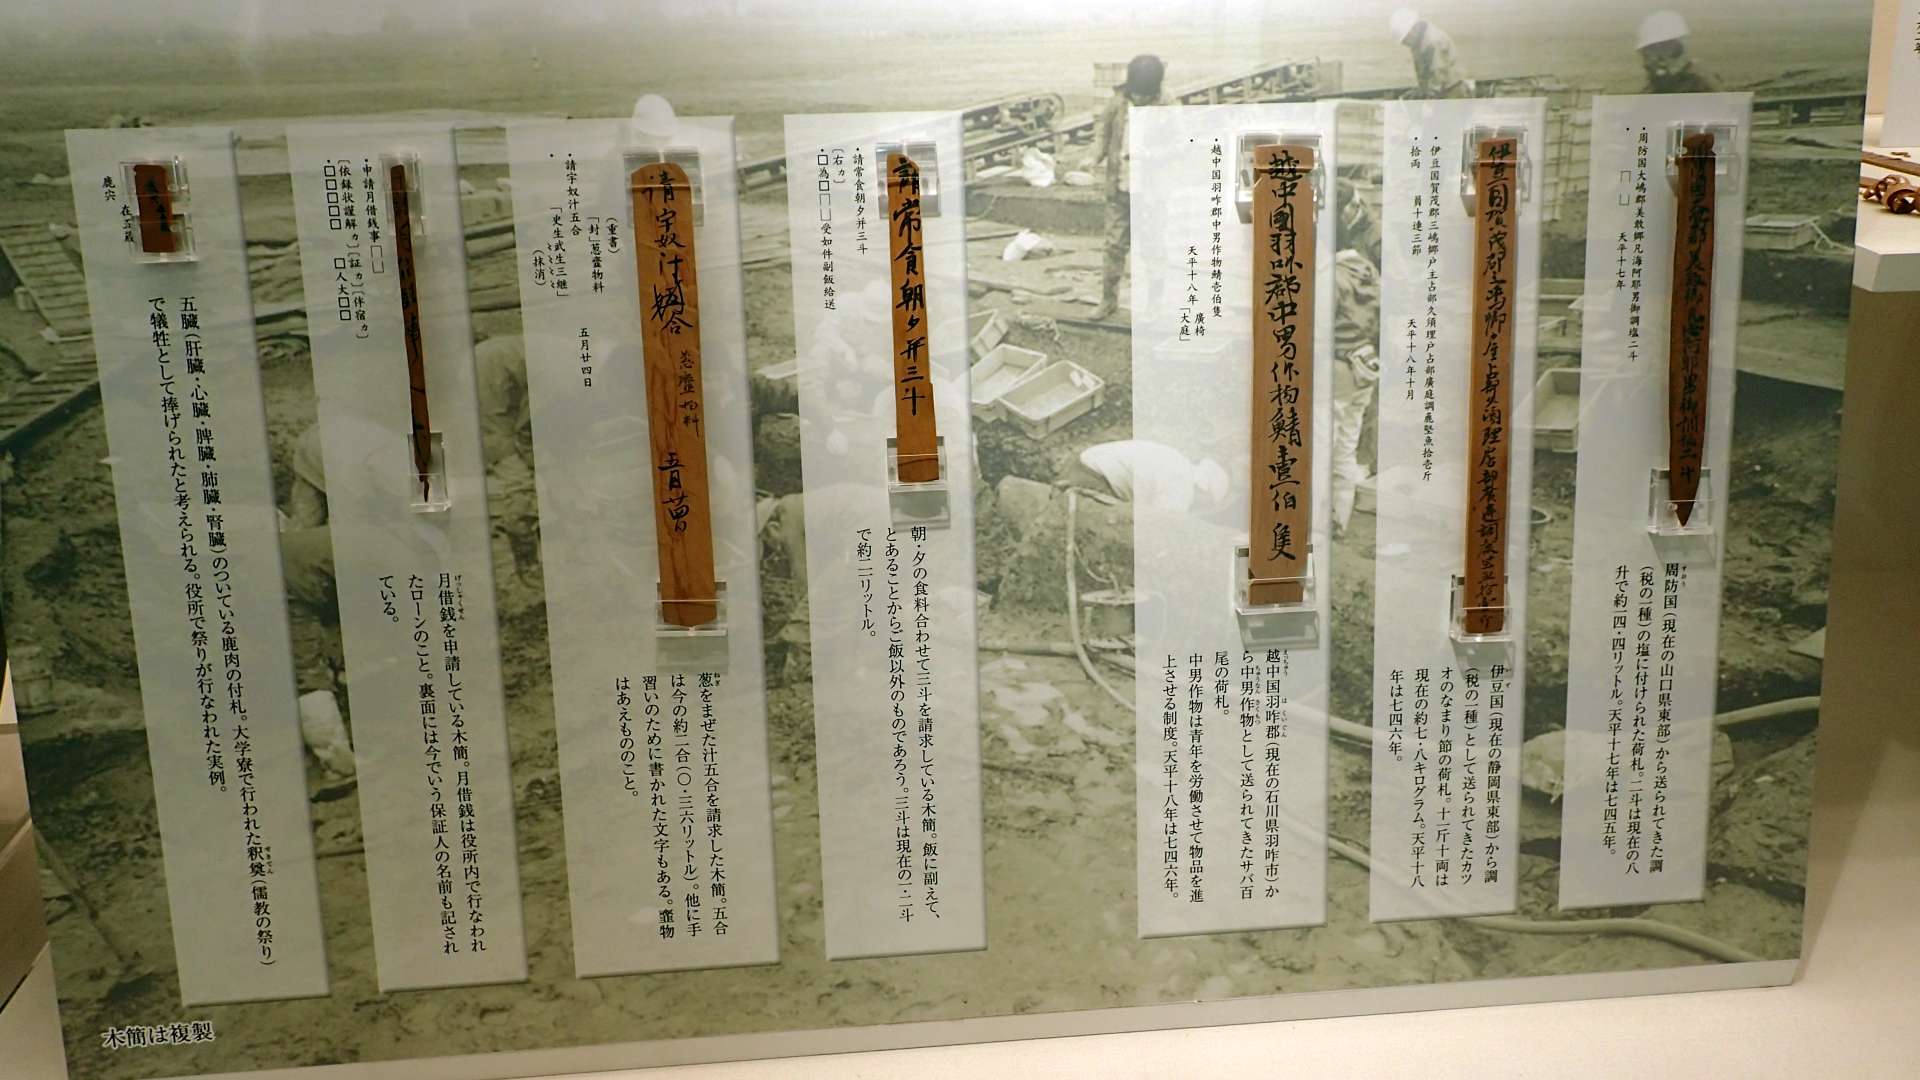 ・周防国大嶋郡美敢郷凡海阿耶男御調塩二斗
・
天平十七年
周防国（現在の山口県東部）から送られてきた調
（税の一種）の塩に付けられた荷札。二斗は現在の八
升で約一四・四リットル。天平十七年は七四五年。
・伊豆国賀茂郡三嶋郷戸主占部久須理戸占部廣庭調麁堅魚拾壱斤
・拾両　員十連三節　天平十八年十月
伊豆国（現在の静岡県東部）から調
（税の一種）として送られてきたカツ
オのなまり節の荷札。十一斤十両は
現在の約七・八キログラム。天平十八
年は七四六年。
越中國羽咋郡中男作物鯖壹伯隻
・越中国羽咋郡中男作物鯖壱伯隻
・
天平十八年 廣椅「大庭」
越中国羽咋郡（現在の石川県羽咋市）か
ら中男作物として送られてきたサバ百
尾の荷札。
中男作物は青年を労働させて物品を進
上させる制度。天平十八年は七四六年。
請常食朝夕并三斗
・請常食朝夕并三斗
〔右ヵ〕
・□為□受如件副飯給送
朝・夕の食料合わせて三斗を請求している木簡。飯に副えて、
とあることからご飯以外のものであろう。三斗は現在の一・二斗
で約二リットル。
・請字奴汁五合
（重書）
「封」葱虀物料
・「史生武生三継」
（抹消）
五月廿四日
葱をまぜた汁五合を請求した木簡。五合
は今の約二合（〇・三六リットル）。他に手
習いのために書かれた文字もある。虀物
はあえもののこと。
・申請月借銭事
〔依録状謹解ヵ〕〔証ヵ〕〔伴宿ヵ〕
・□□□□□ □人大□□
月借銭を申請している木簡。月借銭は役所内で行なわれ
たローンのこと。裏面には今でいう保証人の名前も記され
ている。
鹿宍 在五蔵
五臓（肝臓・心臓・脾臓・肺臓・腎臓）のついている鹿肉の付札。大学寮で行われた釈奠（儒教の祭り）
で犠牲として捧げられたと考えられる。役所で祭りが行なわれた実例。
木簡は複製